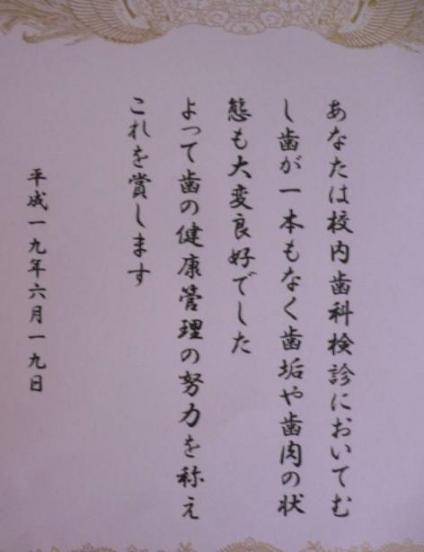 あなたは校内歯科検診においてむ
し歯が一本もなく歯垢や歯肉の状
態も大変良好でした
よって歯の健康管理の努力を称え
これを賞します
平成一九年六月一九日